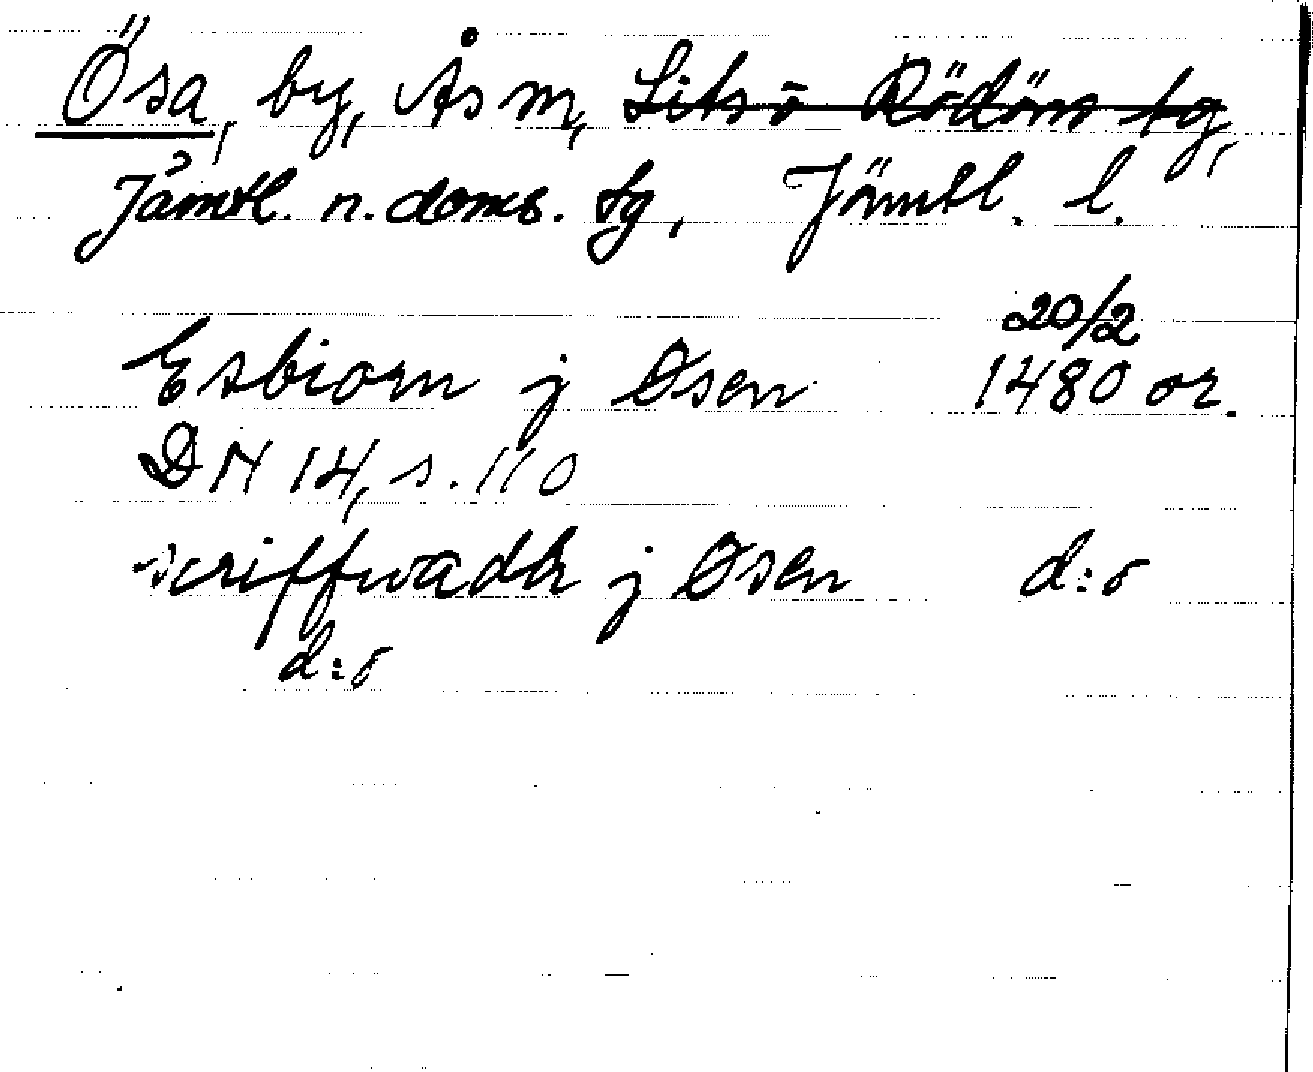 Ösa, by, Ås sn, Lits o Rödöns tg,
Jämtl. n. doms. tg, Jämtl. l.
20/2
Esbiorn j Øsen 1480 or.
DN 14, s. 110
scriffwadh j Øsen d:o
d:o